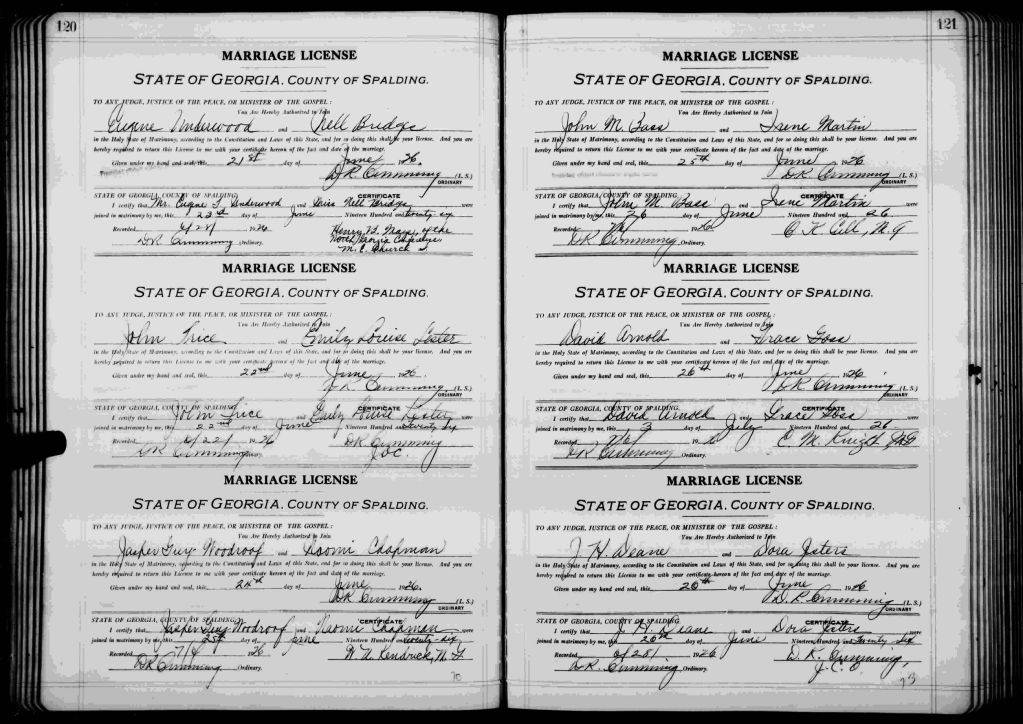 120
MARRIAGE LICENSE
STATE OF GEORGIA, COUNTY OF SPALDING.
TO ANY JUDGE, JUSTICE OF THE PEACE, OR MINISTER OF THE GOSPEL:
You Are Hereby Authorized to Join
Eugene Underwood and Nell Bridge
in the Holy State of Matrimony, according to the Constitution and Laws of this State, and for so doing this shall be your license. And you are
hereby required to return this License to me with your certificate hereon of the fact and date of the marriage.
Given under my hand and seal, this 21st day of June 1926.
D R Cumming (L. S.)
ORDINARY
STATE OF GEORGIA, COUNTY OF SPALDING. CERTIFICATE
I certify that Mr. Eugene Underwood and Nell Bridge were
joined in matrimony by me, this 23rd day of June Nineteen Hundred and twenty-six
Recorded 6/28/ 1926 Henry of the
D R Cumming Ordinary. North Georgia Conference
M. E. Church S.
MARRIAGE LICENSE
STATE OF GEORGIA, COUNTY OF SPALDING.
TO ANY JUDGE, JUSTICE OF THE PEACE, OR MINISTER OF THE GOSPEL:
You Are Hereby Authorized to Join
John Trice and Emily Louise Lester
in the Holy State of Matrimony, according to the Constitution and Laws of this State, and for so doing this shall be your license. And you are
hereby required to return this License to me with your certificate hereon of the fact and date of the marriage.
Given under my hand and seal, this 22nd day of June 1926.
D R Cumming (L. S.)
ORDINARY
STATE OF GEORGIA, COUNTY OF SPALDING. CERTIFICATE
I certify that John Trice and Emily Louise Lester were
joined in matrimony by me, this 22nd day of June Nineteen Hundred and twenty six
Recorded 6/22/ 1926 D R Cumming
D R Cumming Ordinary. J.O.C.
MARRIAGE LICENSE
STATE OF GEORGIA, COUNTY OF SPALDING.
TO ANY JUDGE, JUSTICE OF THE PEACE, OR MINISTER OF THE GOSPEL:
You Are Hereby Authorized to Join
Jasper Guy Woodroof and Naomi Chapman
in the Holy State of Matrimony, according to the Constitution and Laws of this State, and for so doing this shall be your license. And you are
hereby required to return this License to me with your certificate hereon of the fact and date of the marriage.
Given under my hand and seal, this 24th day of June 1926.
D R Cumming (L. S.)
ORDINARY
STATE OF GEORGIA, COUNTY OF SPALDING. CERTIFICATE
I certify that Jasper Guy Woodroof and Naomi Chapman were
joined in matrimony by me, this 25th day of June Nineteen Hundred and twenty-six
Recorded 1926 Kendrick, M. G.
D R Cumming Ordinary.
70
121
MARRIAGE LICENSE
STATE OF GEORGIA, COUNTY OF SPALDING.
TO ANY JUDGE, JUSTICE OF THE PEACE, OR MINISTER OF THE GOSPEL:
You Are Hereby Authorized to Join
John M. Bass and Irene Martin
in the Holy State of Matrimony, according to the Constitution and Laws of this State, and for so doing this shall be your license. And you are
hereby required to return this License to me with your certificate hereon of the fact and date of the marriage.
Given under my hand and seal, this 25th day of June 1926
D R Cumming (L. S.)
ORDINARY
STATE OF GEORGIA, COUNTY OF SPALDING. CERTIFICATE
I certify that John M. Bass and Irene Martin were
joined in matrimony by me, this 26 day of June Nineteen Hundred and 26
Recorded 1926 M. G
D R Cumming Ordinary.
MARRIAGE LICENSE
STATE OF GEORGIA, COUNTY OF SPALDING.
TO ANY JUDGE, JUSTICE OF THE PEACE, OR MINISTER OF THE GOSPEL:
You Are Hereby Authorized to Join
David Arnold and Grace Goss
in the Holy State of Matrimony, according to the Constitution and Laws of this State, and for so doing this shall be your license. And you are
hereby required to return this License to me with your certificate hereon of the fact and date of the marriage.
Given under my hand and seal, this 26th day of June 1926.
D R Cumming (L. S.)
ORDINARY
STATE OF GEORGIA, COUNTY OF SPALDING. CERTIFICATE
I certify that David Arnold and Grace Goss were
joined in matrimony by me, this 3 day of July Nineteen Hundred and 26
Recorded C. M.
D R Cumming Ordinary.
MARRIAGE LICENSE
STATE OF GEORGIA, COUNTY OF SPALDING.
TO ANY JUDGE, JUSTICE OF THE PEACE, OR MINISTER OF THE GOSPEL:
You Are Hereby Authorized to Join
J H Deane and Dora Peters
in the Holy State of Matrimony, according to the Constitution and Laws of this State, and for so doing this shall be your license. And you are
hereby required to return this License to me with your certificate hereon of the fact and date of the marriage.
Given under my hand and seal, this 26th day of June 1926
D. R Cumming (L. S.)
ORDINARY
STATE OF GEORGIA, COUNTY OF SPALDING. CERTIFICATE
I certify that J. H. Deane and Dora Peters were
joined in matrimony by me, this 26th day of June Nineteen Hundred and twenty-six
Recorded 6/28/ 1926 D. R. Cumming,
D R Cumming Ordinary. J. C. O
73